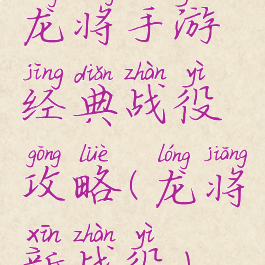 龙将手游
jīng diǎn zhàn yì
经典战役
gōng lüè lóng jiāng
攻略(龙将
xīn zhàn yì
新战役)